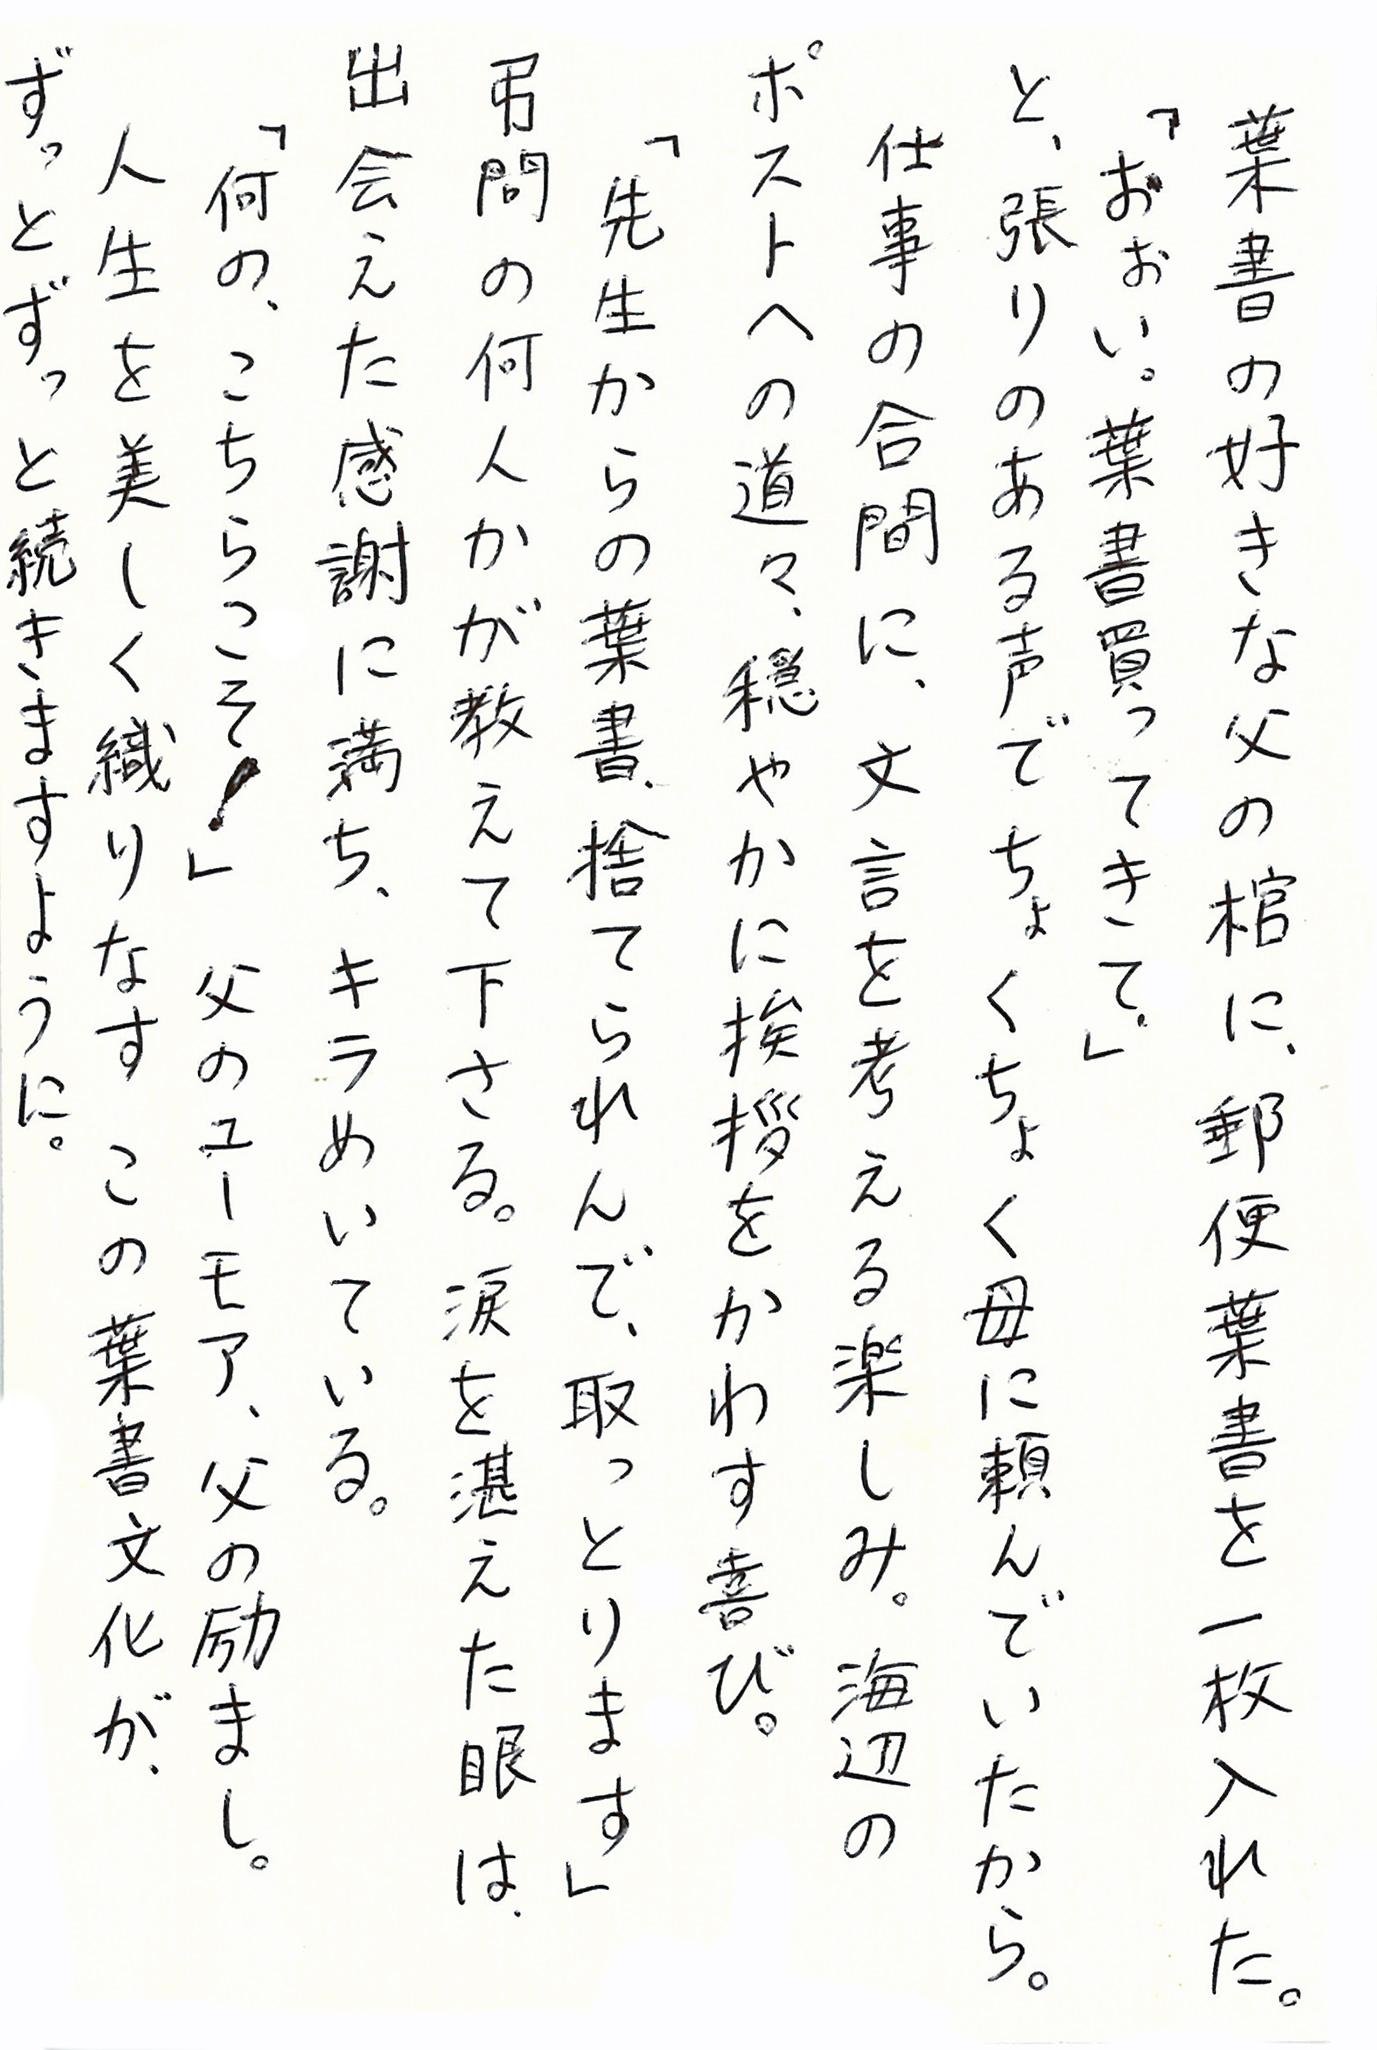 葉書の好きな父の棺に、郵便葉書を一枚入れた。
「おぉい。葉書買ってきて。」
と、張りのある声でちょくちょく母に頼んでいたから。
仕事の合間に、文言を考える楽しみ。海辺の
ポストへの道々、穏やかに挨拶をかわす喜び。
「先生からの葉書、捨てられんで、取っとります」
弔問の何人かが教えて下さる。涙を湛えた眼は、
出会えた感謝に満ち、キラめいている。
「何の、こちらこそ!」父のユーモア、父の励まし。
人生を美しく織りなす この葉書文化が、
ずっとずっと続きますように。